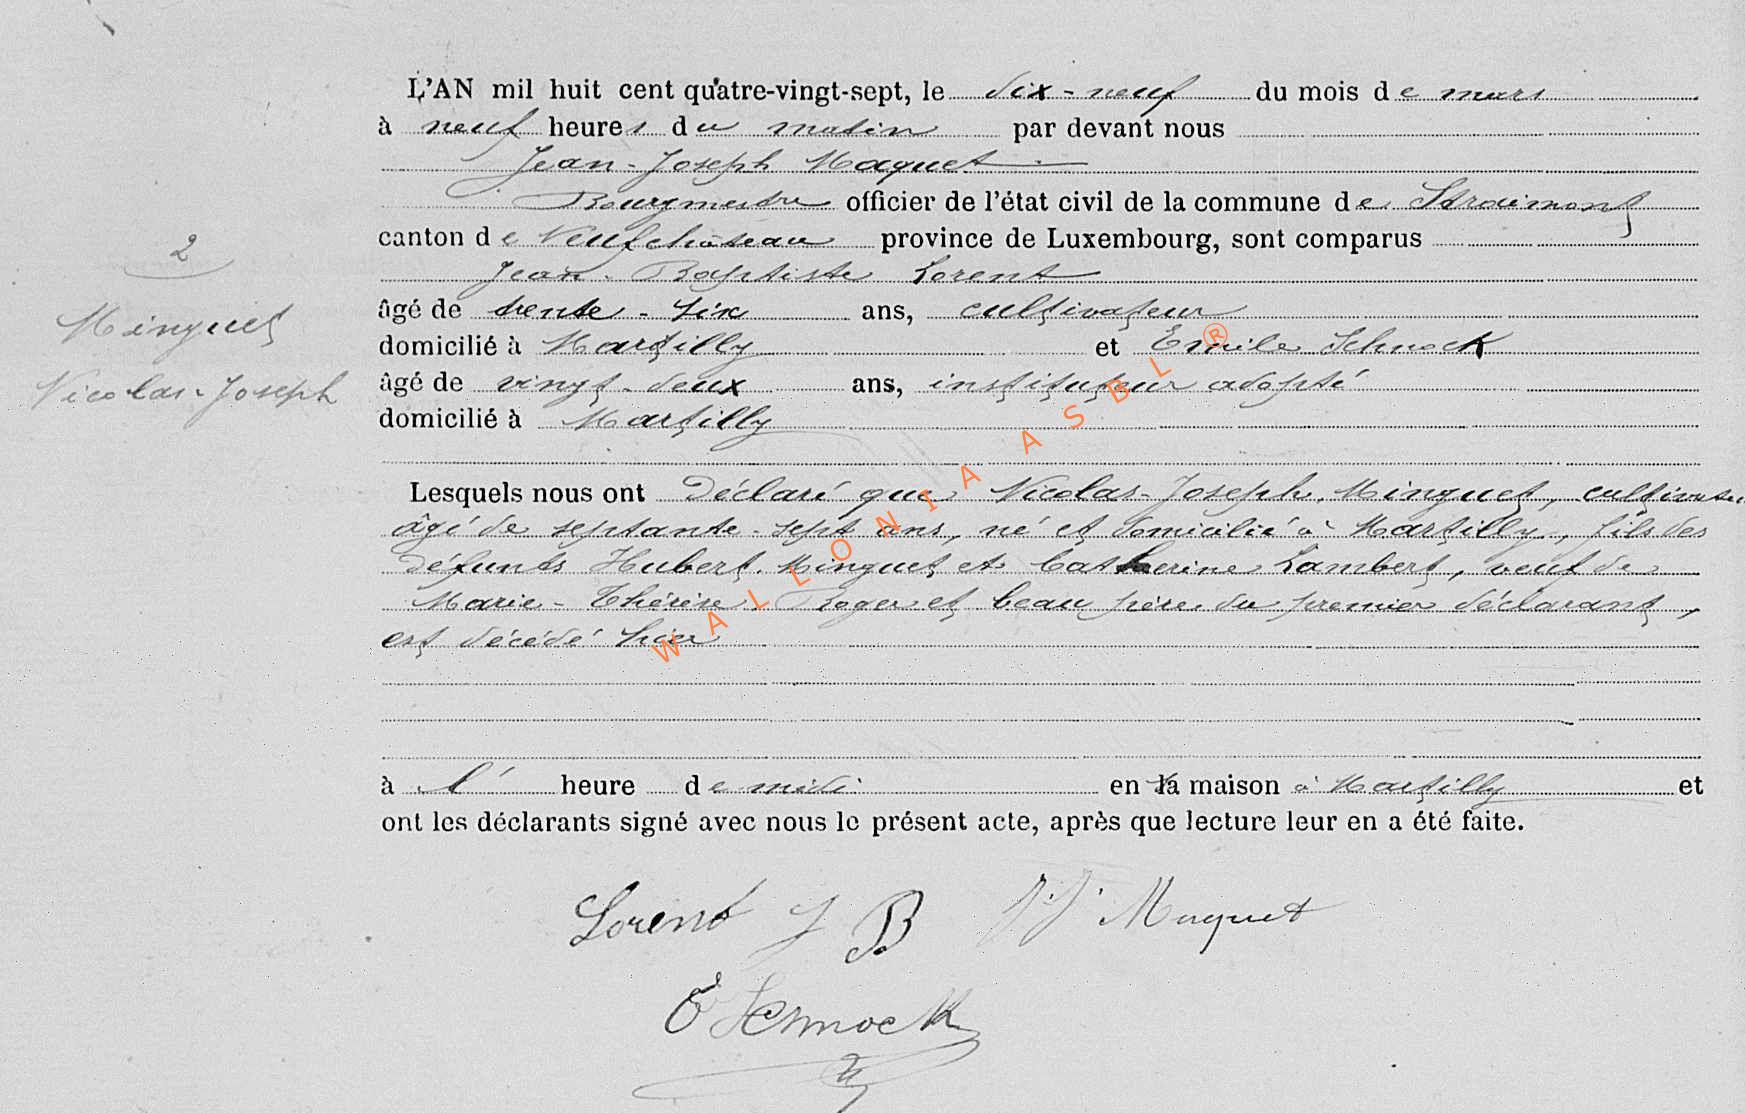 L'AN mil huit cent quatre-vingt-sept, le dix-neuf du mois de mars
à neuf heures du matin par devant nous
Jean-Joseph Maquet
Bourgmestre officier de l'état civil de la commune de Straimont
2
canton de Neufchâteau province de Luxembourg, sont comparus
Jean-Baptiste Lorent
Minguet
âgé de trente-six ans, cultivateur
domicilié à Martilly et Emile Schnock
Nicolas-Joseph
âgé de vingt-deux ans, instituteur adopté
domicilié à Martilly
Lesquels nous ont déclaré que Nicolas-Joseph Minguet, cultivateur
âgé de septante-sept ans, né et domicilié à Martilly, fils des
défunts Hubert Minguet et Catherine Lambert, veuf de
Marie-Thérèse Roger et beau père du premier déclarant,
est décédé hier
à l' heure de midi en la maison à Martilly et
ont les déclarants signé avec nous le présent acte, après que lecture leur en a été faite.
Lorent J B J.J. Maquet
E Schnock
WALLONIA ASBL ®